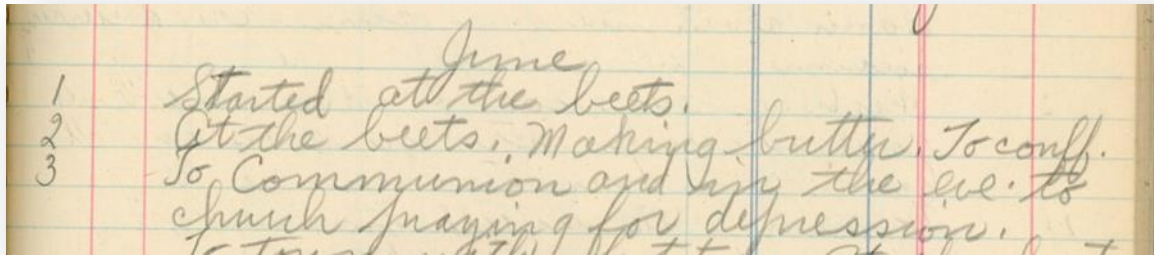 June
1 Started at the beets.
2 At the beets. Making butter. To conff.
3 To Communion and in the eve. to
church praying for depression.